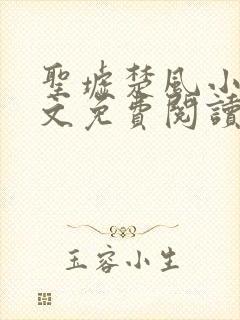 聖墟楚風小
文免費閱讀
玉容小生